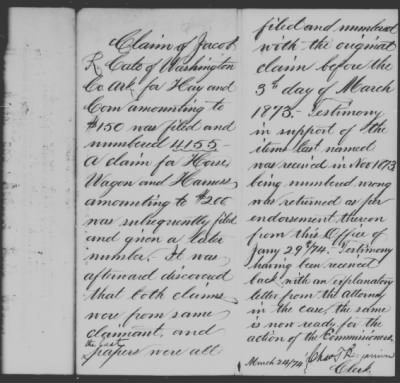 Claim of Jacob
R Cato of Washington
Co Ark for Hay and
Corn amounting to
$150 was filed and
numbered 4155 -
A claim for Horse,
Wagon and Harness,
amounting to $200
was subsequently filed
and given a later
number. It was
afterward discovered
that both claims
were from same
claimant, and
the last
papers were all
filed and numbered
with the original
claim before the
3d day of March
1873. - Testimony
in support of the
items last named
was received in Nov 1873
being numbered wrong
was returned as per
endorsement thereon
from this Office of
Jany 29th/74. Testimony
having been received
back with an explanatory
letter from the attorney
in the case, the same
is now ready for the
action of the Commissioners.
March 24/74
Clerk.